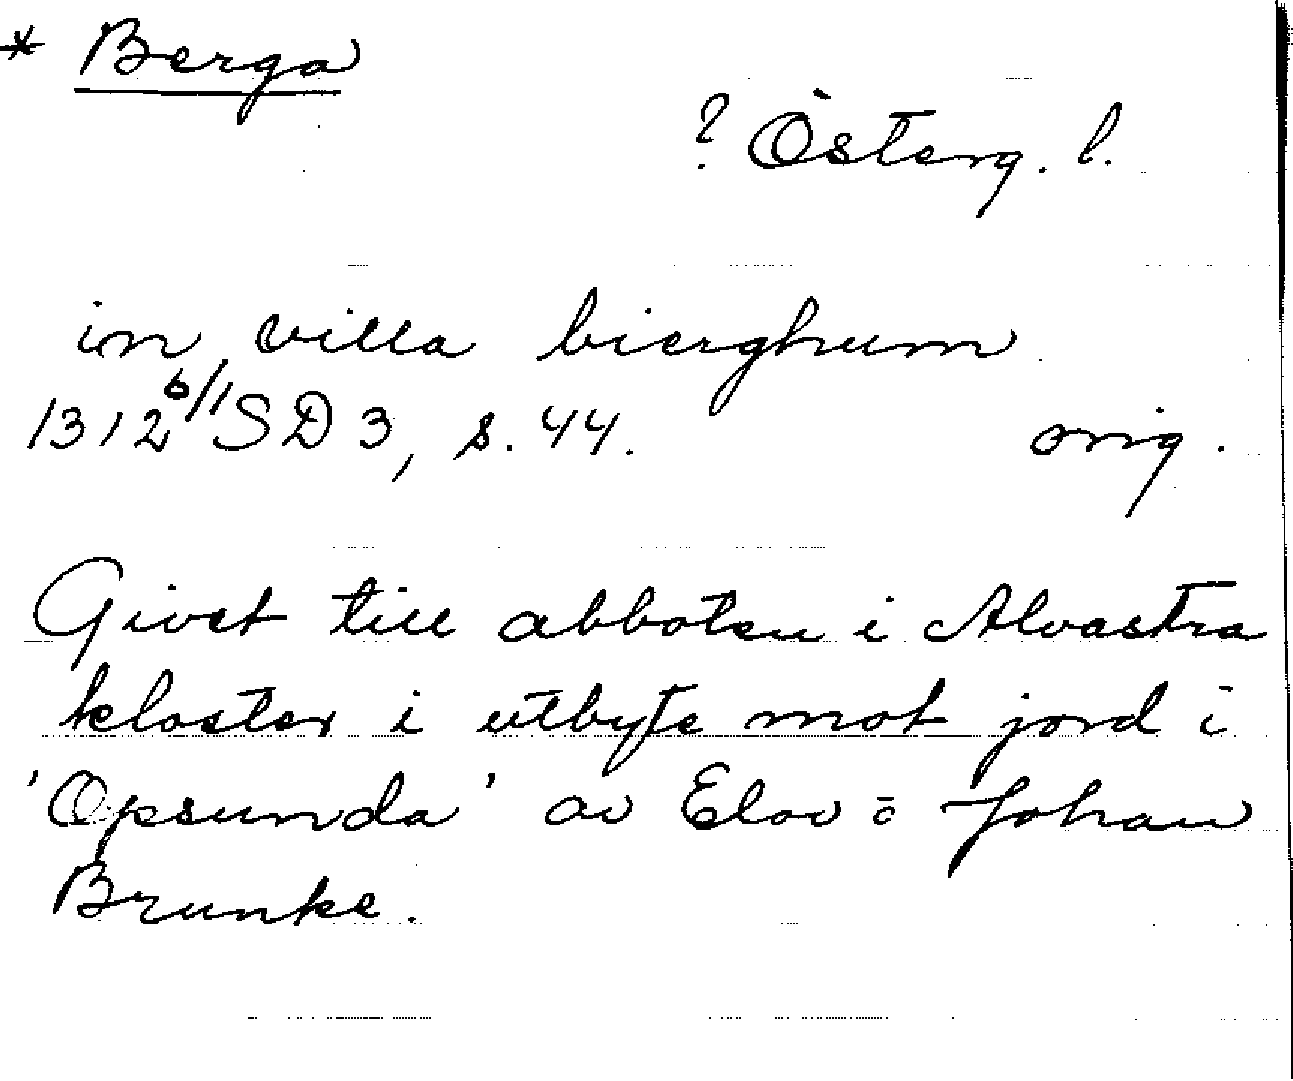 * Berga
? Österg. l.
in villa bierghum
1312 6/1 SD 3, s. 44. orig.
Givet till abboten i Alvastra
kloster i utbyte mot jord i
'Opsunda' av Elav o Johan
Brunke.